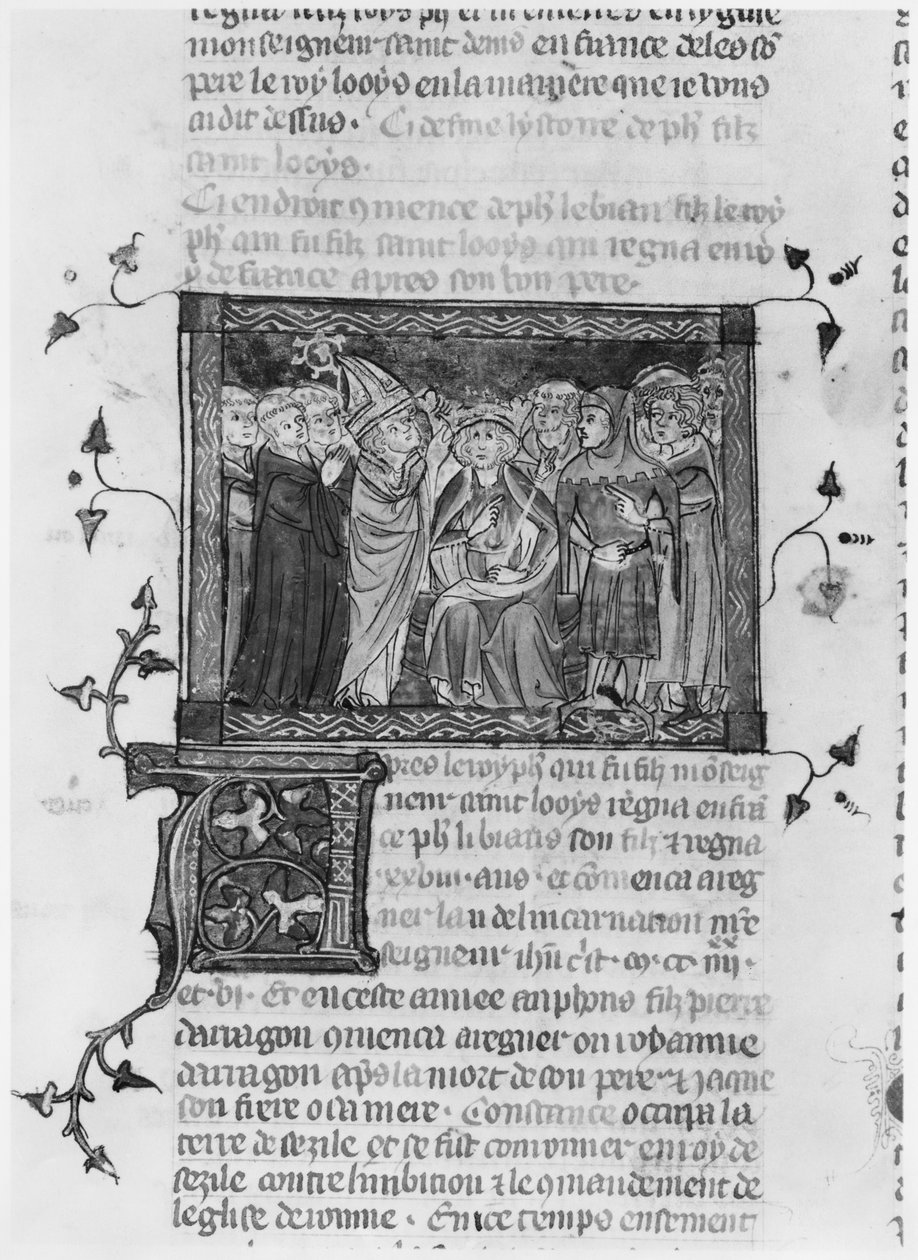 monseigneur saint denis en france deles so
pere le roy looys en la maniere que ie vous
ai dit dessus. Ci define lystoire de ph filz
saint looys.
Ci endroit 9mence de ph le biau filz le roy
ph qui fu filz saint looys qui regna en ro
y de france apres son bon pere.
Apres le roy ph qui fu filz mōseig
neur saint looys regna en frā
ce ph li biaus son filz ⁊ regna
.xxviii. ans. et cōmenca a reg
ner lan de lincarnation nr̄e
seigneur ih̄u c̄ist. m. cc. iiii xx.
et .vi. Et en ceste annee anphons filz pierre
darragon 9menca a regner ou royaume
darragon ap̄s la mort de son pere. ⁊ jaque
son frere o sa mere. Constance occupa la
terre de sezile et se fist couronner en roy de
sezile contre linibition ⁊ le 9mandement de
leglise de romme. En ice temps ensement